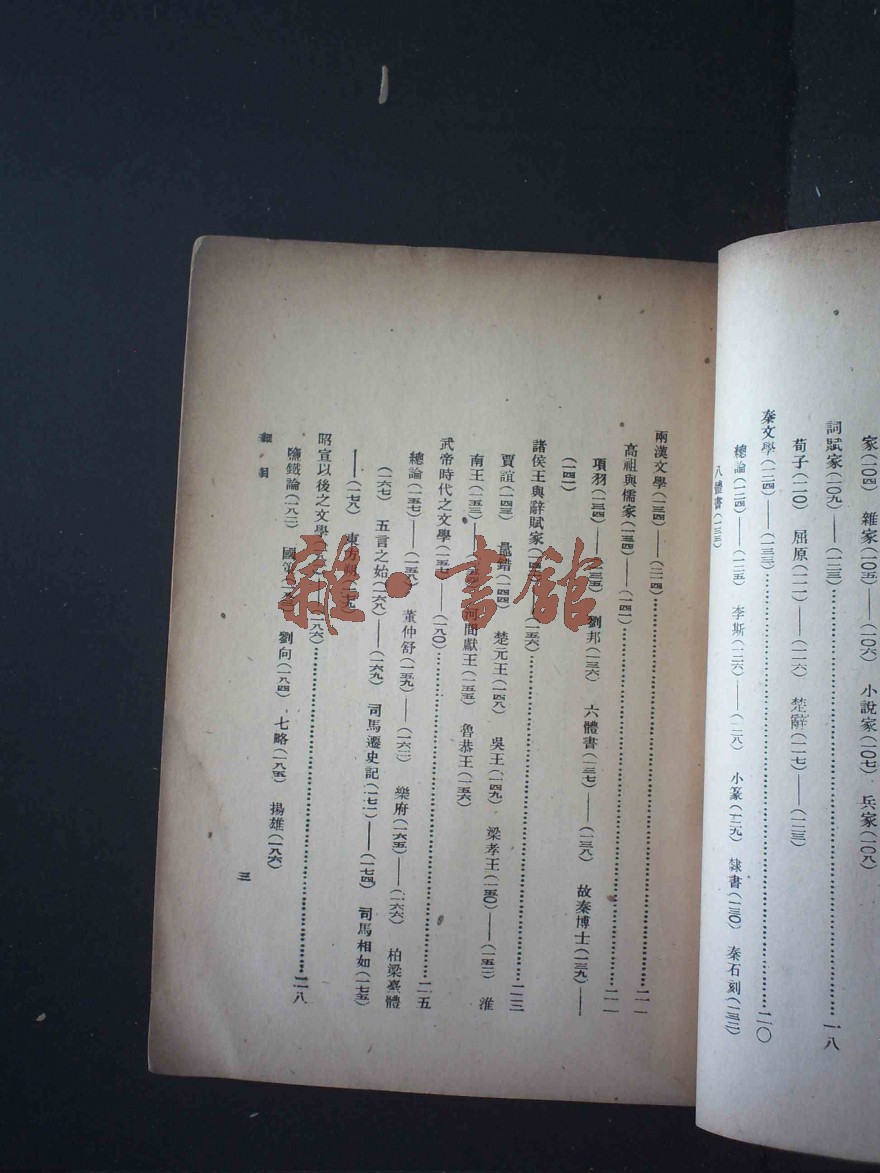 家(一〇四) 雜家(一〇五)——(一〇六) 小說家(一〇七) 兵家(一〇八)
詞賦家(一〇九)——(一二三)……一八
荀子(一一〇) 屈原(一一一)——(一一六) 楚辭(一一七)——(一二三)
秦文學(一二四)——(一三三)……二〇
總論(一二四)——(一二五) 李斯(一二六)——(一二八) 小篆(一二九) 隸書(一三〇) 秦石刻(一三二)
八體書(一三三)
兩漢文學(一三四)——(二一四)……二一
高祖與儒家(一三四)——(一四一)……二一
項羽(一三四)——(一三五) 劉邦(一三六) 六體書(一三七)——(一三八) 故秦博士(一三九)——
(一四一)
諸侯王與辭賦家(一四二)——(一五六)……二三
賈誼(一四三) 鼂錯(一四四) 楚元王(一四八) 吳王(一四九) 梁孝王(一五〇)——(一五二) 淮
南王(一五三)——(一五四) 河間獻王(一五五) 魯恭王(一五六)
武帝時代之文學(一五七)——(一八〇)……二五
總論(一五七)——(一五八) 董仲舒(一五九)——(一六二) 樂府(一六五)——(一六六) 柏梁臺體
(一六七) 五言之始(一六八)——(一六九) 司馬遷史記(一七一)——(一七四) 司馬相如(一七五)
——(一七八) 東方朔(一七九)
昭宣以後之文學——(一八六)……二八
鹽鐵論(一八二) 國策 劉向(一八四) 七略(一八五) 揚雄(一八六)
細目
三
雜·書館